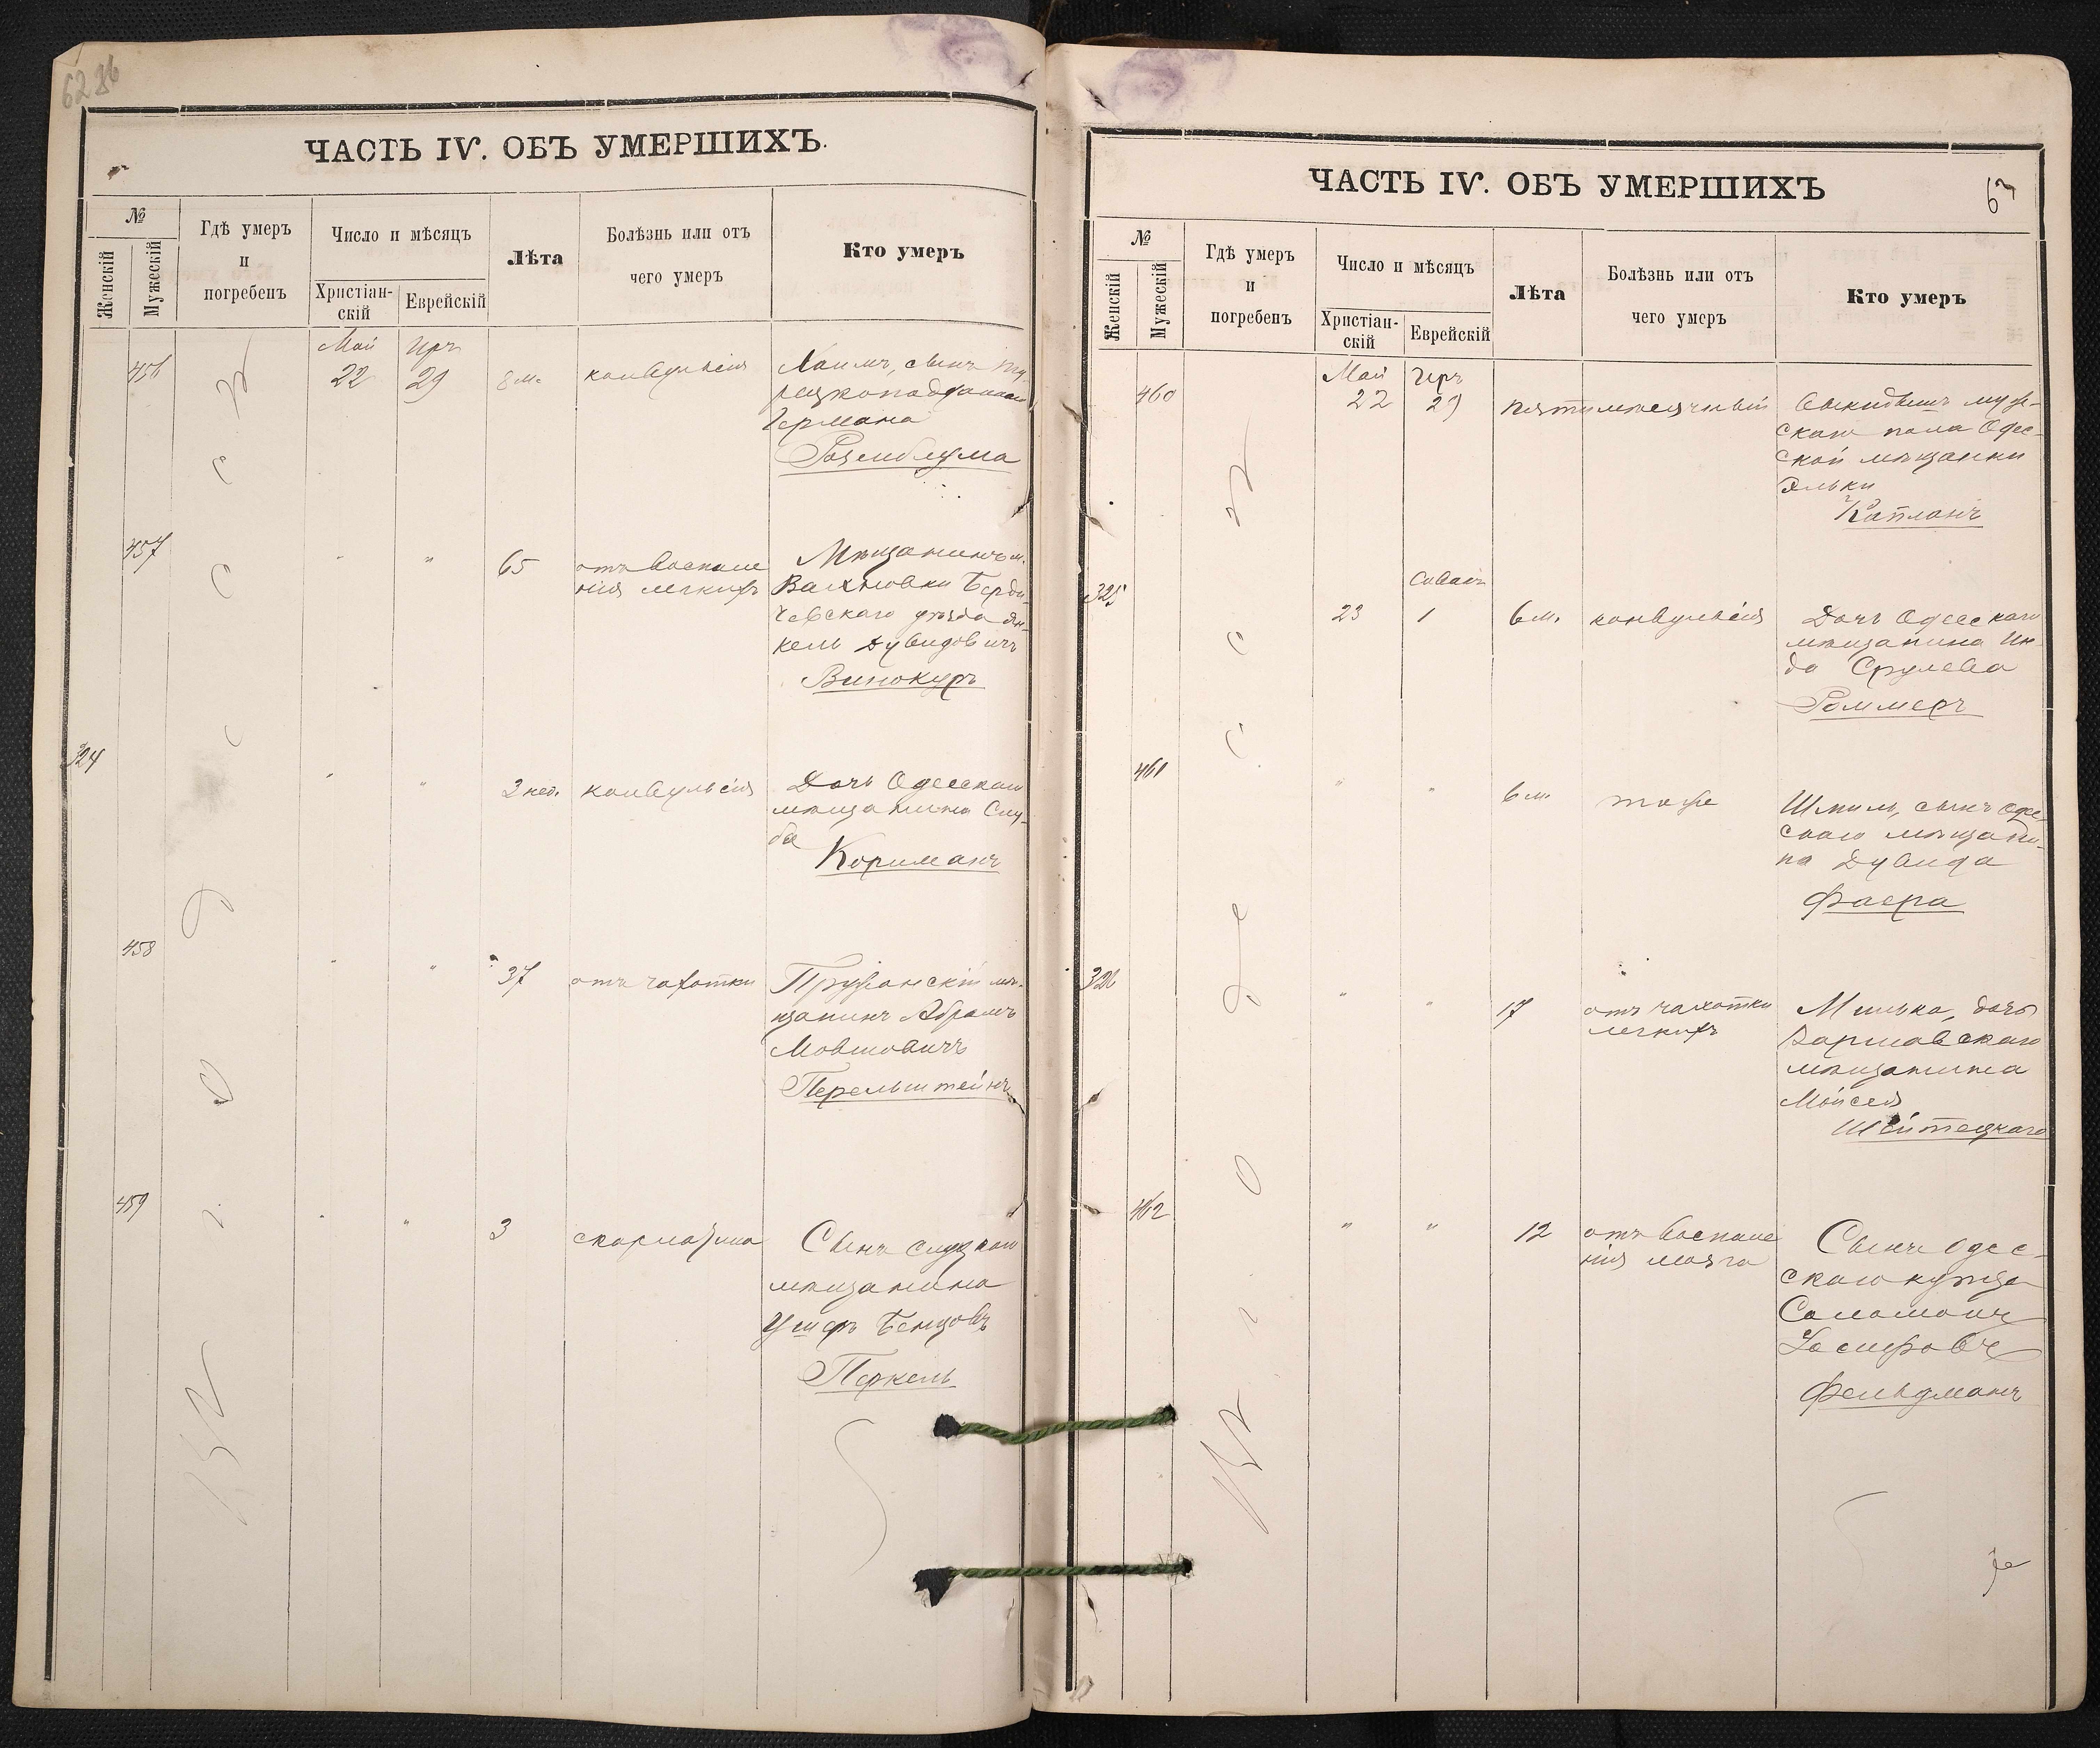 62
ЧАСТЬ IV. ОБЪ УМЕРШИХЪ.
№
Женскій
Мужескій
Гдѣ умеръ
и
погребенъ
Число и мѣсяцъ
Христіан-
скій
Еврейскій
Лѣта
Болѣзнь или отъ
чего умеръ
Кто умеръ
въ г. Одессѣ
456
Май
22
Иръ
29
8 м.
конвульсія
Хаимъ, сынъ ту-
рецкоподданнаго
Германа
Розенблума
457
"
"
65
отъ воспале
нія легкихъ
Мѣщанинъ м.
Вахновки Берди-
чевскаго уѣзда Ян-
кель Дувидовичъ
Винокуръ
324
"
"
2 нед.
конвульсія
Дочь Одесскаго
мѣщанина Сру-
ля
Кориманъ
458
"
"
37
отъ чахотки
Пружанскій мѣ-
щанинъ Абрамъ
Мовшовичъ
Перельштейнъ
459
"
"
3
скарлатина
Сынъ слуцкаго
мѣщанина
Ушеръ Бенцовъ
Перкель
ЧАСТЬ IV. ОБЪ УМЕРШИХЪ
63
№
Женскій
Мужескій
Гдѣ умеръ
и
погребенъ
Число и мѣсяцъ
Христіан-
скій
Еврейскій
Лѣта
Болѣзнь или отъ
чего умеръ
Кто умеръ
въ г. Одессѣ
460
Май
22
Иръ
29
пятимѣсячный
Выкидышъ муже-
скаго пола Одес-
ской мѣщанки
Эльки
Капланъ
325
23
Сиванъ
1
6 м.
конвульсія
Дочь Одесскаго
мѣщанина Ин-
да Срулева
Роммеръ
461
"
"
6 м.
тоже
Шмиль, сынъ Одес-
скаго мѣщани-
на Дувида
Фаера
326
"
"
17
отъ чахотки
легкихъ
Минька, дочь
Варшавскаго
мѣщанина
Мойсея
462
"
"
12
отъ воспале
нія мозга
Сынъ Одес-
скаго купца
Соломонъ
Фельдманъ